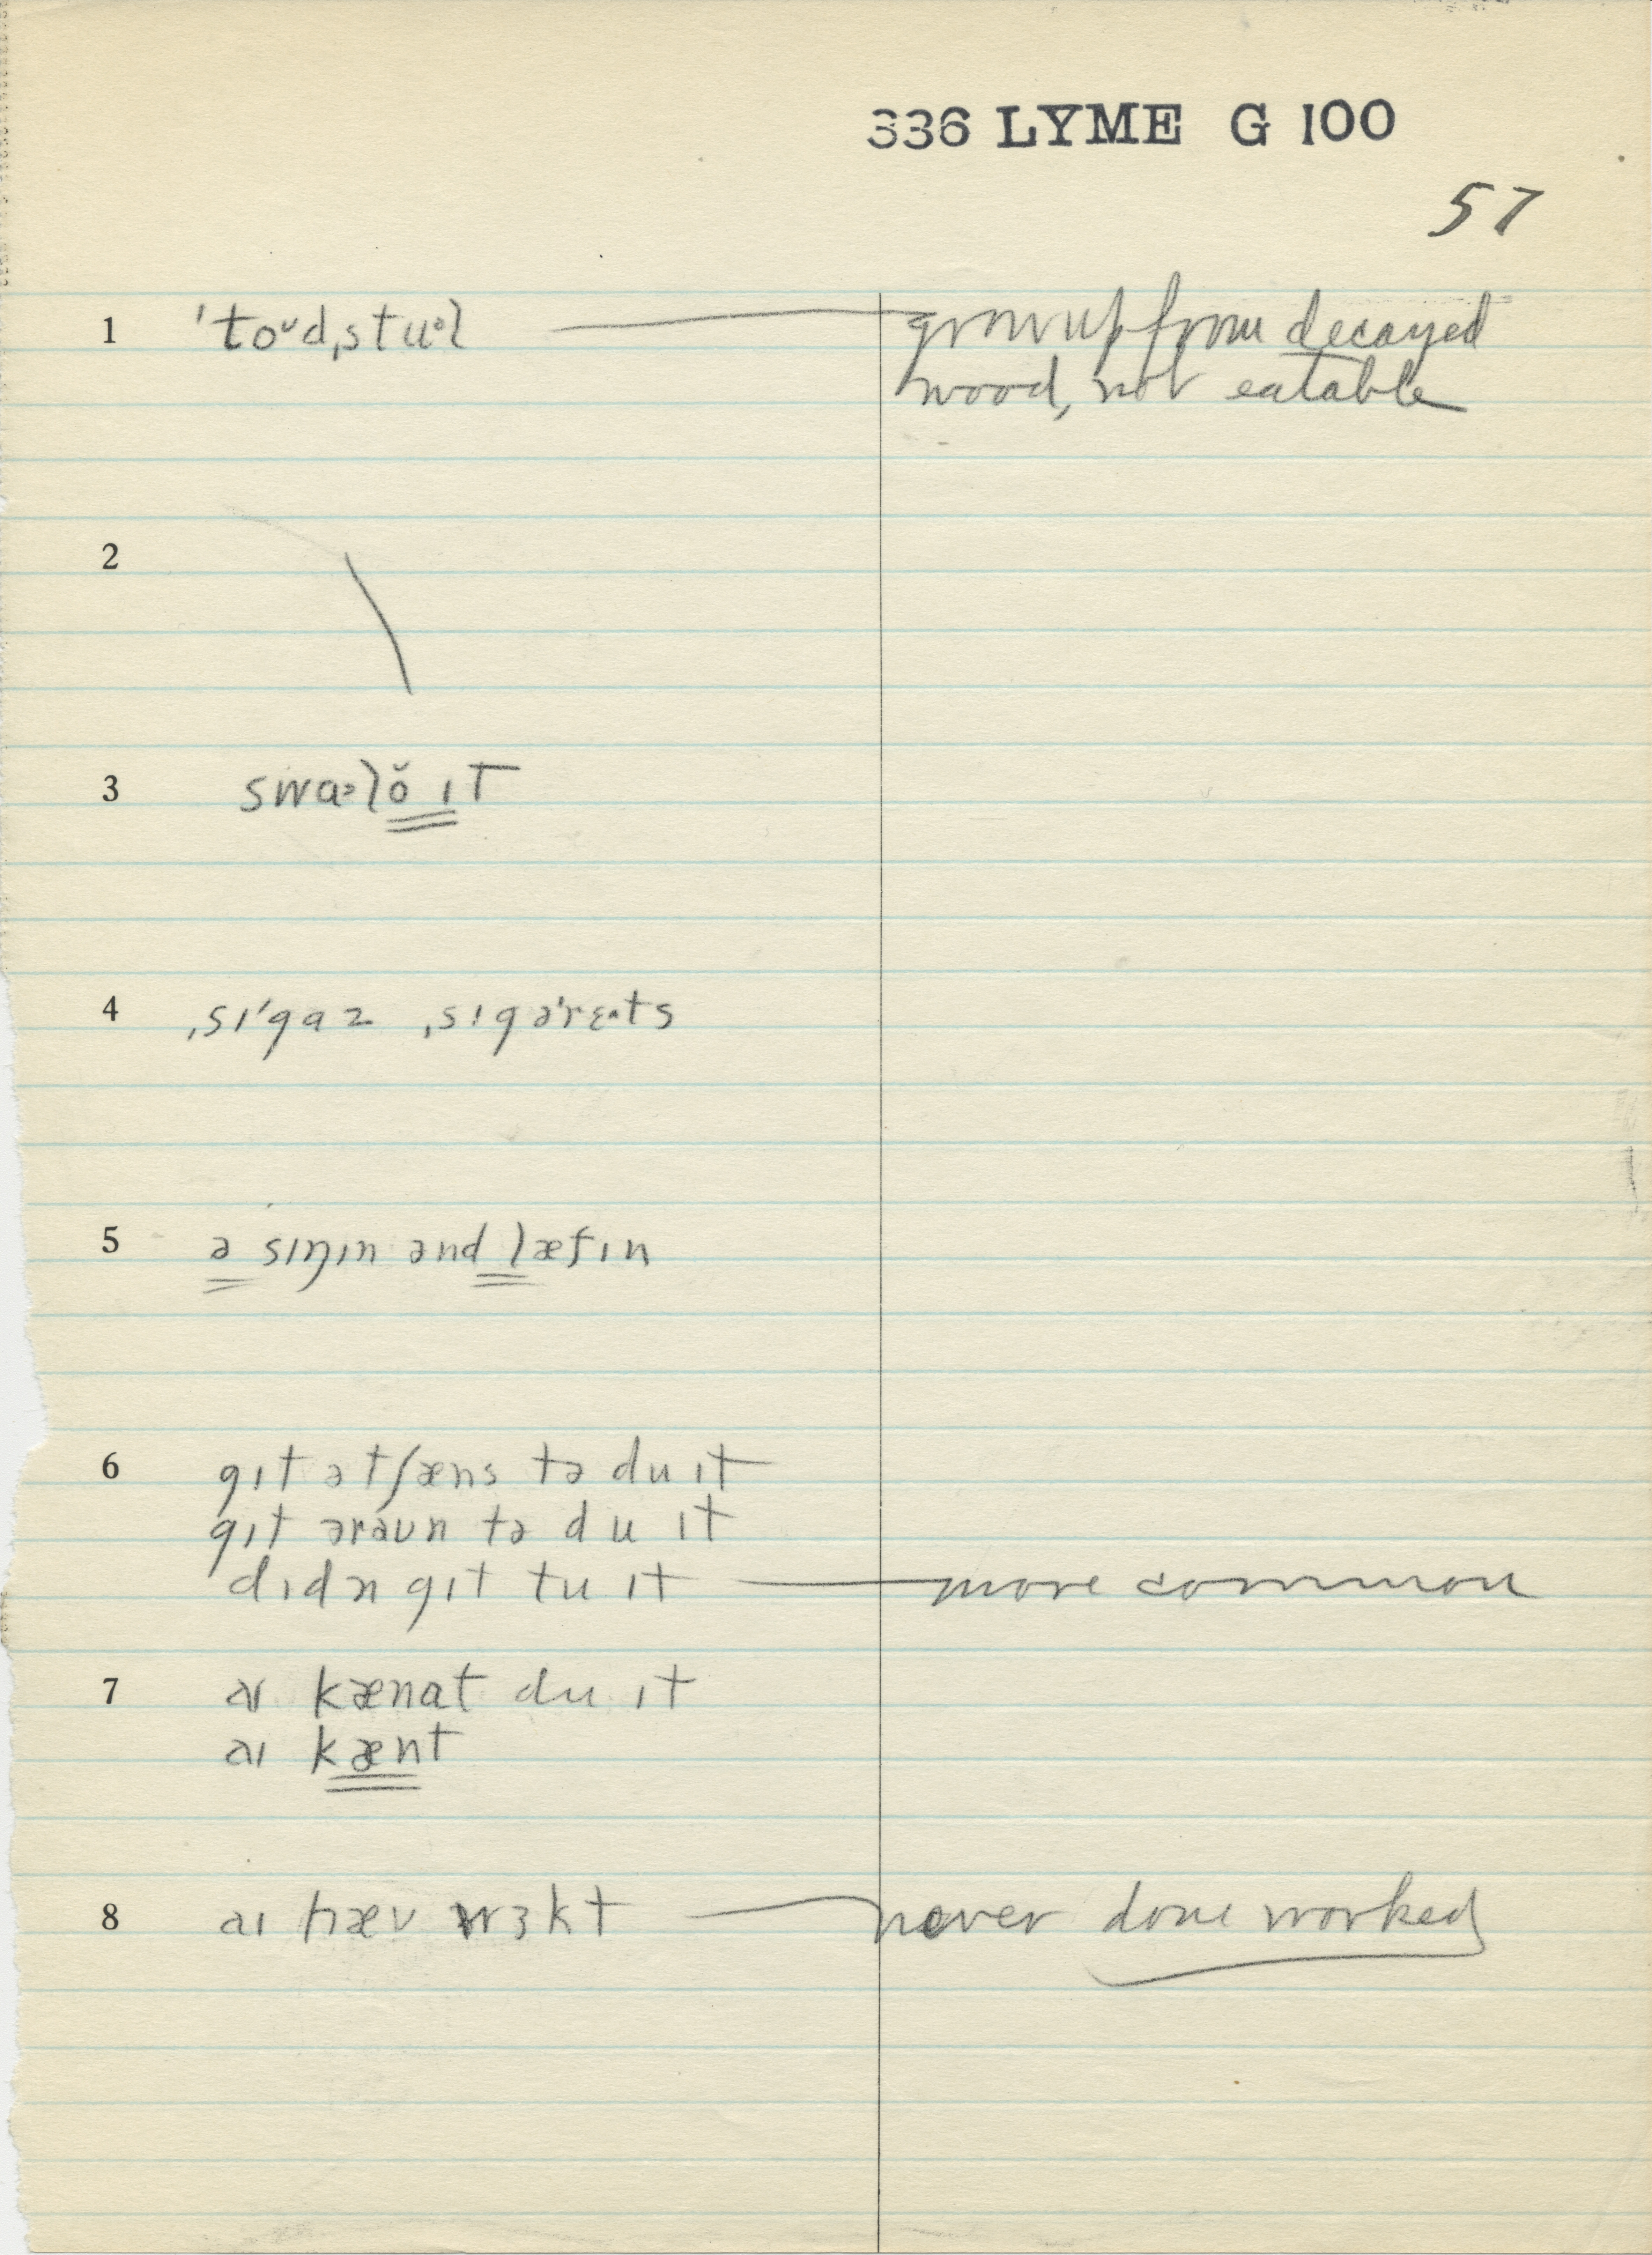 336 LYME G 100
57
1 ˈtoᵕd,stuˑl grow up from decayed
wood, not eatable
2
3 swaˑlŏ ɪt
4 ˌsɪˈgaz ˌsɪgəˈrɛˑts
5 ə sɪŋɪn ənd læfɪn
6 gɪt ə tʃæns tə du ɪt
gɪt əraʊn tə du ɪt
dɪdn gɪt tu ɪt more common
7 aɪ kænat du ɪt
aɪ kænt
8 aɪ hæv wɜkt never done worked